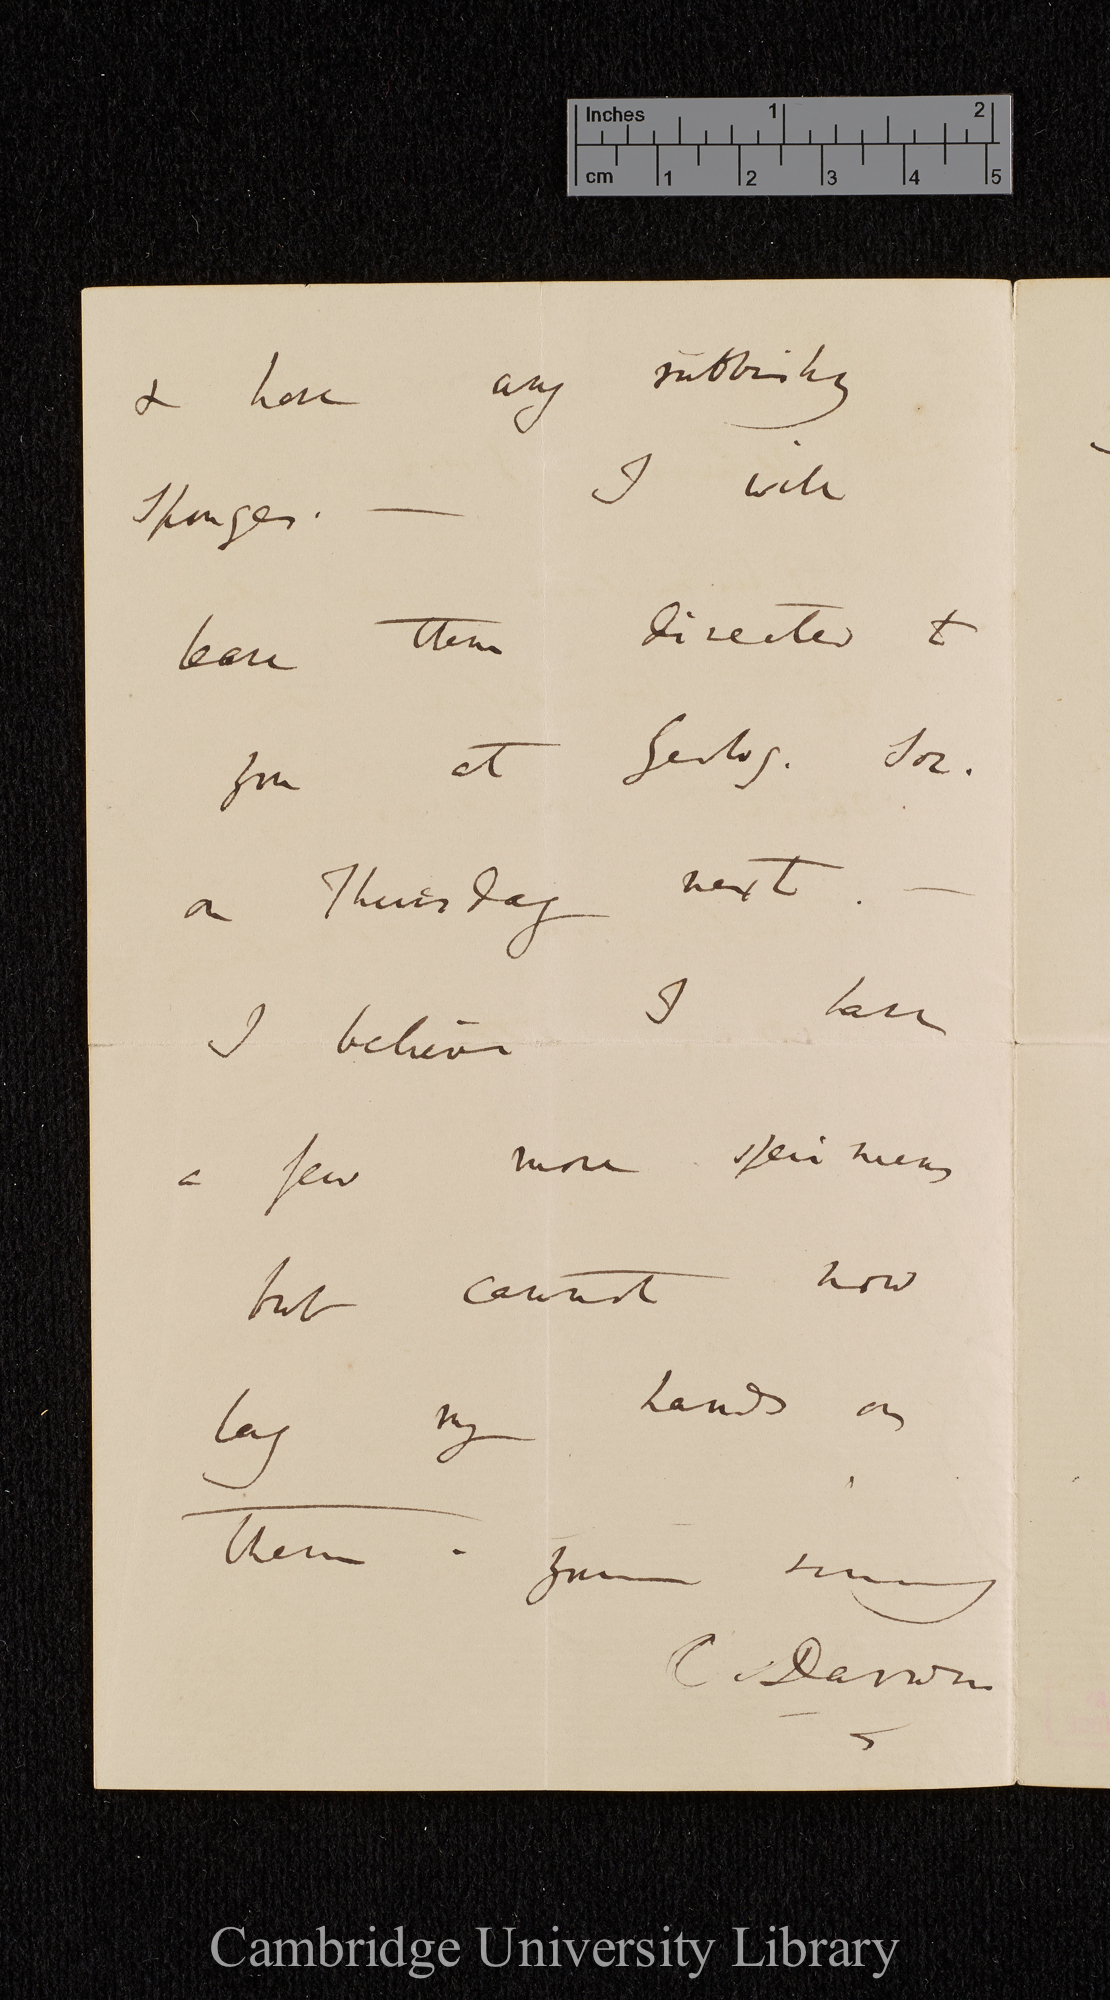 Inches 1 2
cm 1 2 3 4 5
& have any rubbishy
sponges. — I will
leave them directed to
you at Geolog. Soc.
on Thursday next. —
I believe I have
a few more specimens
but cannot now
lay my hands on
them. Yours
C. Darwin
Cambridge University Library